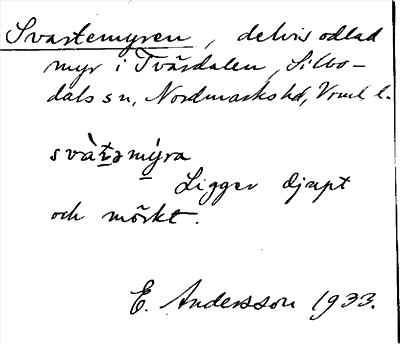 Svartemyren, delvis odlad
myr i Tvärdalen, Silbo-
dals sn, Nordmarks hd, Vrml. l.
svàtəmýra
Ligger djupt
och mörkt.
E. Andersson 1933.